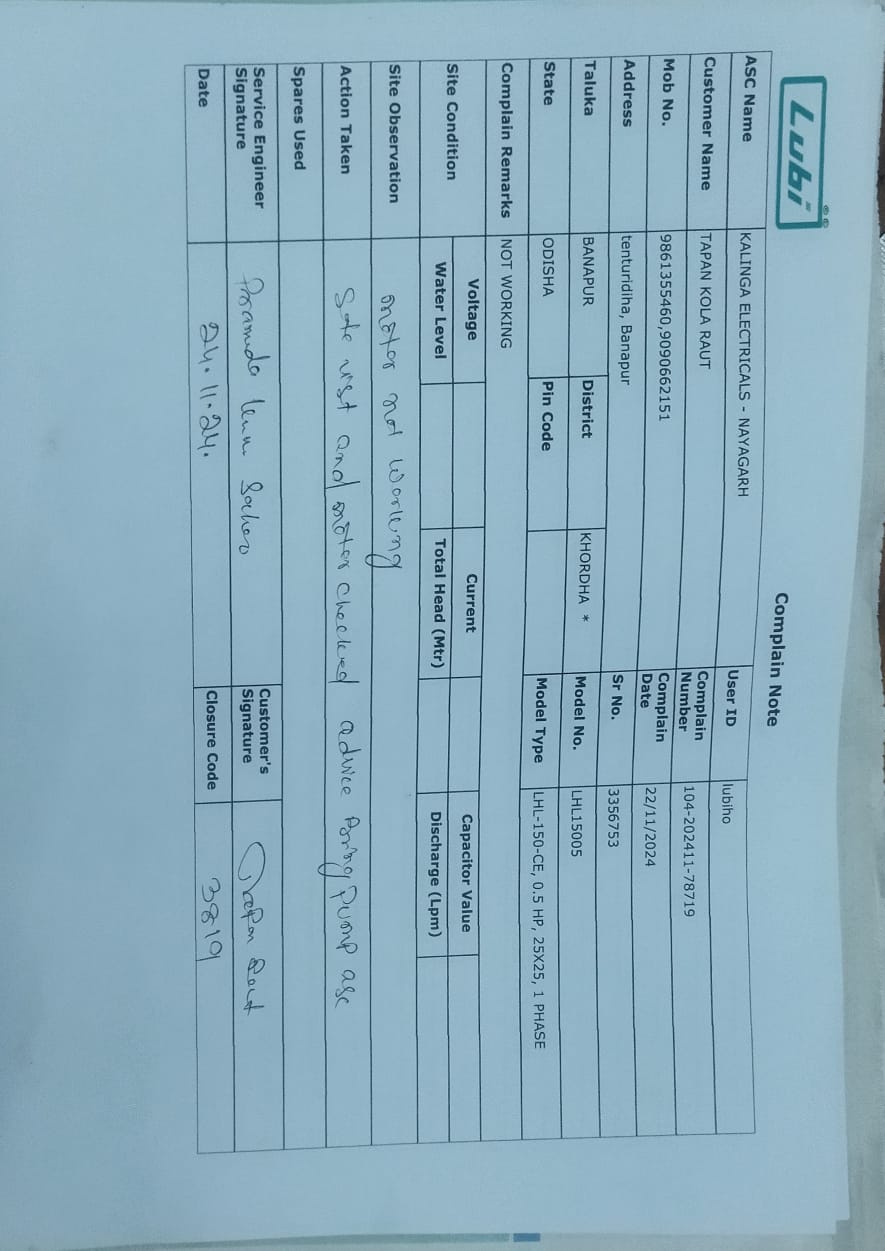 Lubi
Complain Note
ASC Name KALINGA ELECTRICALS - NAYAGARH User ID lubiho
Customer Name TAPAN KOLA RAUT Complain Number 104-202411-78719
Mob No. 9861355460,9090662151 Complain Date 22/11/2024
Address tenturidiha, Banapur Sr No. 3356753
Taluka BANAPUR District KHORDHA * Model No. LHL15005
State ODISHA Pin Code Model Type LHL-150-CE, 0.5 HP, 25X25, 1 PHASE
Complain Remarks NOT WORKING
Site Condition Voltage Current Capacitor Value
Water Level Total Head (Mtr) Discharge (Lpm)
Site Observation motor not working
Action Taken Site vist and motor checked advice Bring Pump asc
Spares Used
Service Engineer Signature Customer's Signature Tapan Rout
Date 24.11.24. Closure Code 3819